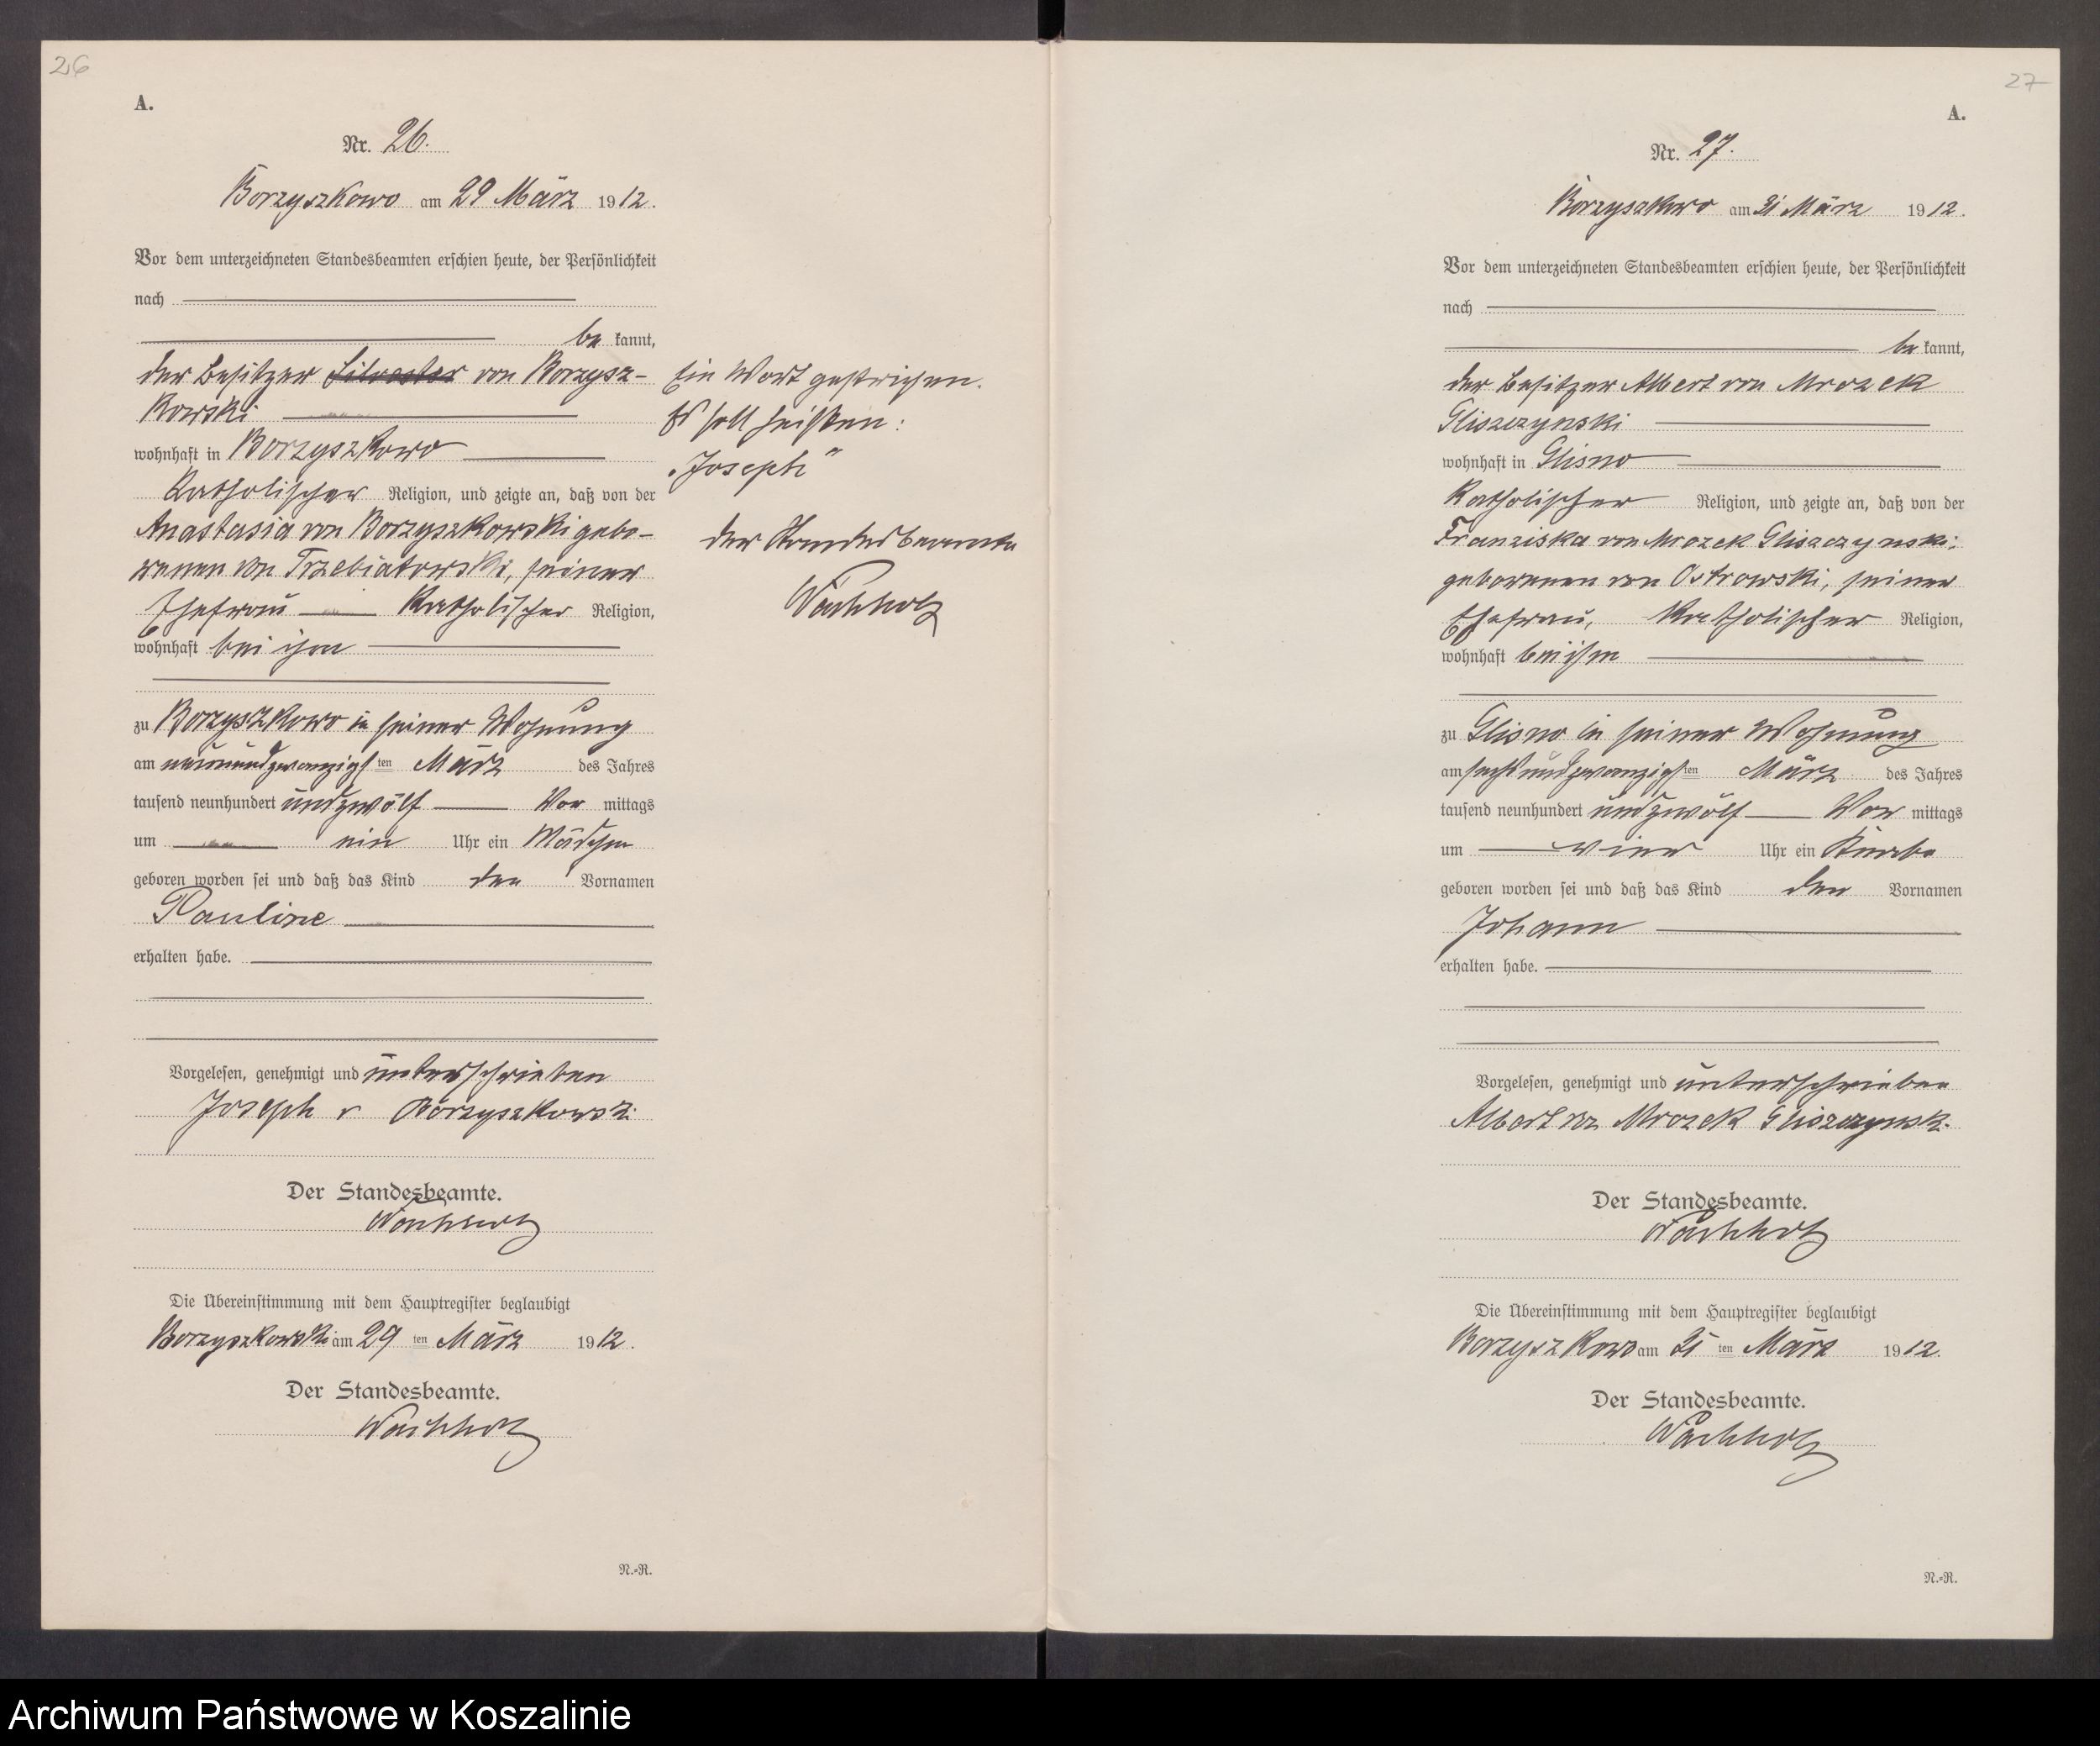 26
A.
Nr. 26.
Borzyszkowo am 29 März 1912.
Vor dem unterzeichneten Standesbeamten erschien heute, der Persönlichkeit
nach
be kannt,
der Besitzer Silvester von Borzysz-
kowski
wohnhaft in Borzyszkowo
katholischer Religion, und zeigte an, daß von der
Anastasia von Borzyszkowski gebo-
renen von Trzebiatowski, seiner
Ehefrau katholischer Religion,
wohnhaft bei ihm
zu Borzyszkowo in seiner Wohnung
am neunundzwanzigsten März des Jahres
tausend neunhundert undzwölf Vor mittags
um ein Uhr ein Mädchen
geboren worden sei und daß das Kind den Vornamen
Pauline
erhalten habe.
Vorgelesen, genehmigt und unterschrieben
Joseph v Borzyszkowski
Der Standesbeamte.
Wachholz
Die Übereinstimmung mit dem Hauptregister beglaubigt
Borzyszkowski am 29 ten März 1912.
Der Standesbeamte.
Wachholz
N.-R.
Ein Wort gestrichen.
Es soll heißen:
„Joseph"
der Standesbeamte
Wachholz
27
A.
Nr. 27.
Borzyszkowo am 31 März 1912.
Vor dem unterzeichneten Standesbeamten erschien heute, der Persönlichkeit
nach
be kannt,
der Besitzer Albert von Mrozek
Gliszczynski
wohnhaft in Glisno
katholischer Religion, und zeigte an, daß von der
Franziska von Mrozek Gliszczynski,
geborenen von Ostrowski, seiner
Ehefrau, katholischer Religion,
wohnhaft bei ihm
zu Glisno in seiner Wohnung
am sechsundzwanzigsten März des Jahres
tausend neunhundert undzwölf Vor mittags
um vier Uhr ein Knabe
geboren worden sei und daß das Kind den Vornamen
Johann
erhalten habe.
Vorgelesen, genehmigt und unterschrieben
Albert von Mrozek Gliszczynski
Der Standesbeamte.
Wachholz
Die Übereinstimmung mit dem Hauptregister beglaubigt
Borzyszkowo am 31 ten März 1912.
Der Standesbeamte.
Wachholz
N.-R.
Archiwum Państwowe w Koszalinie